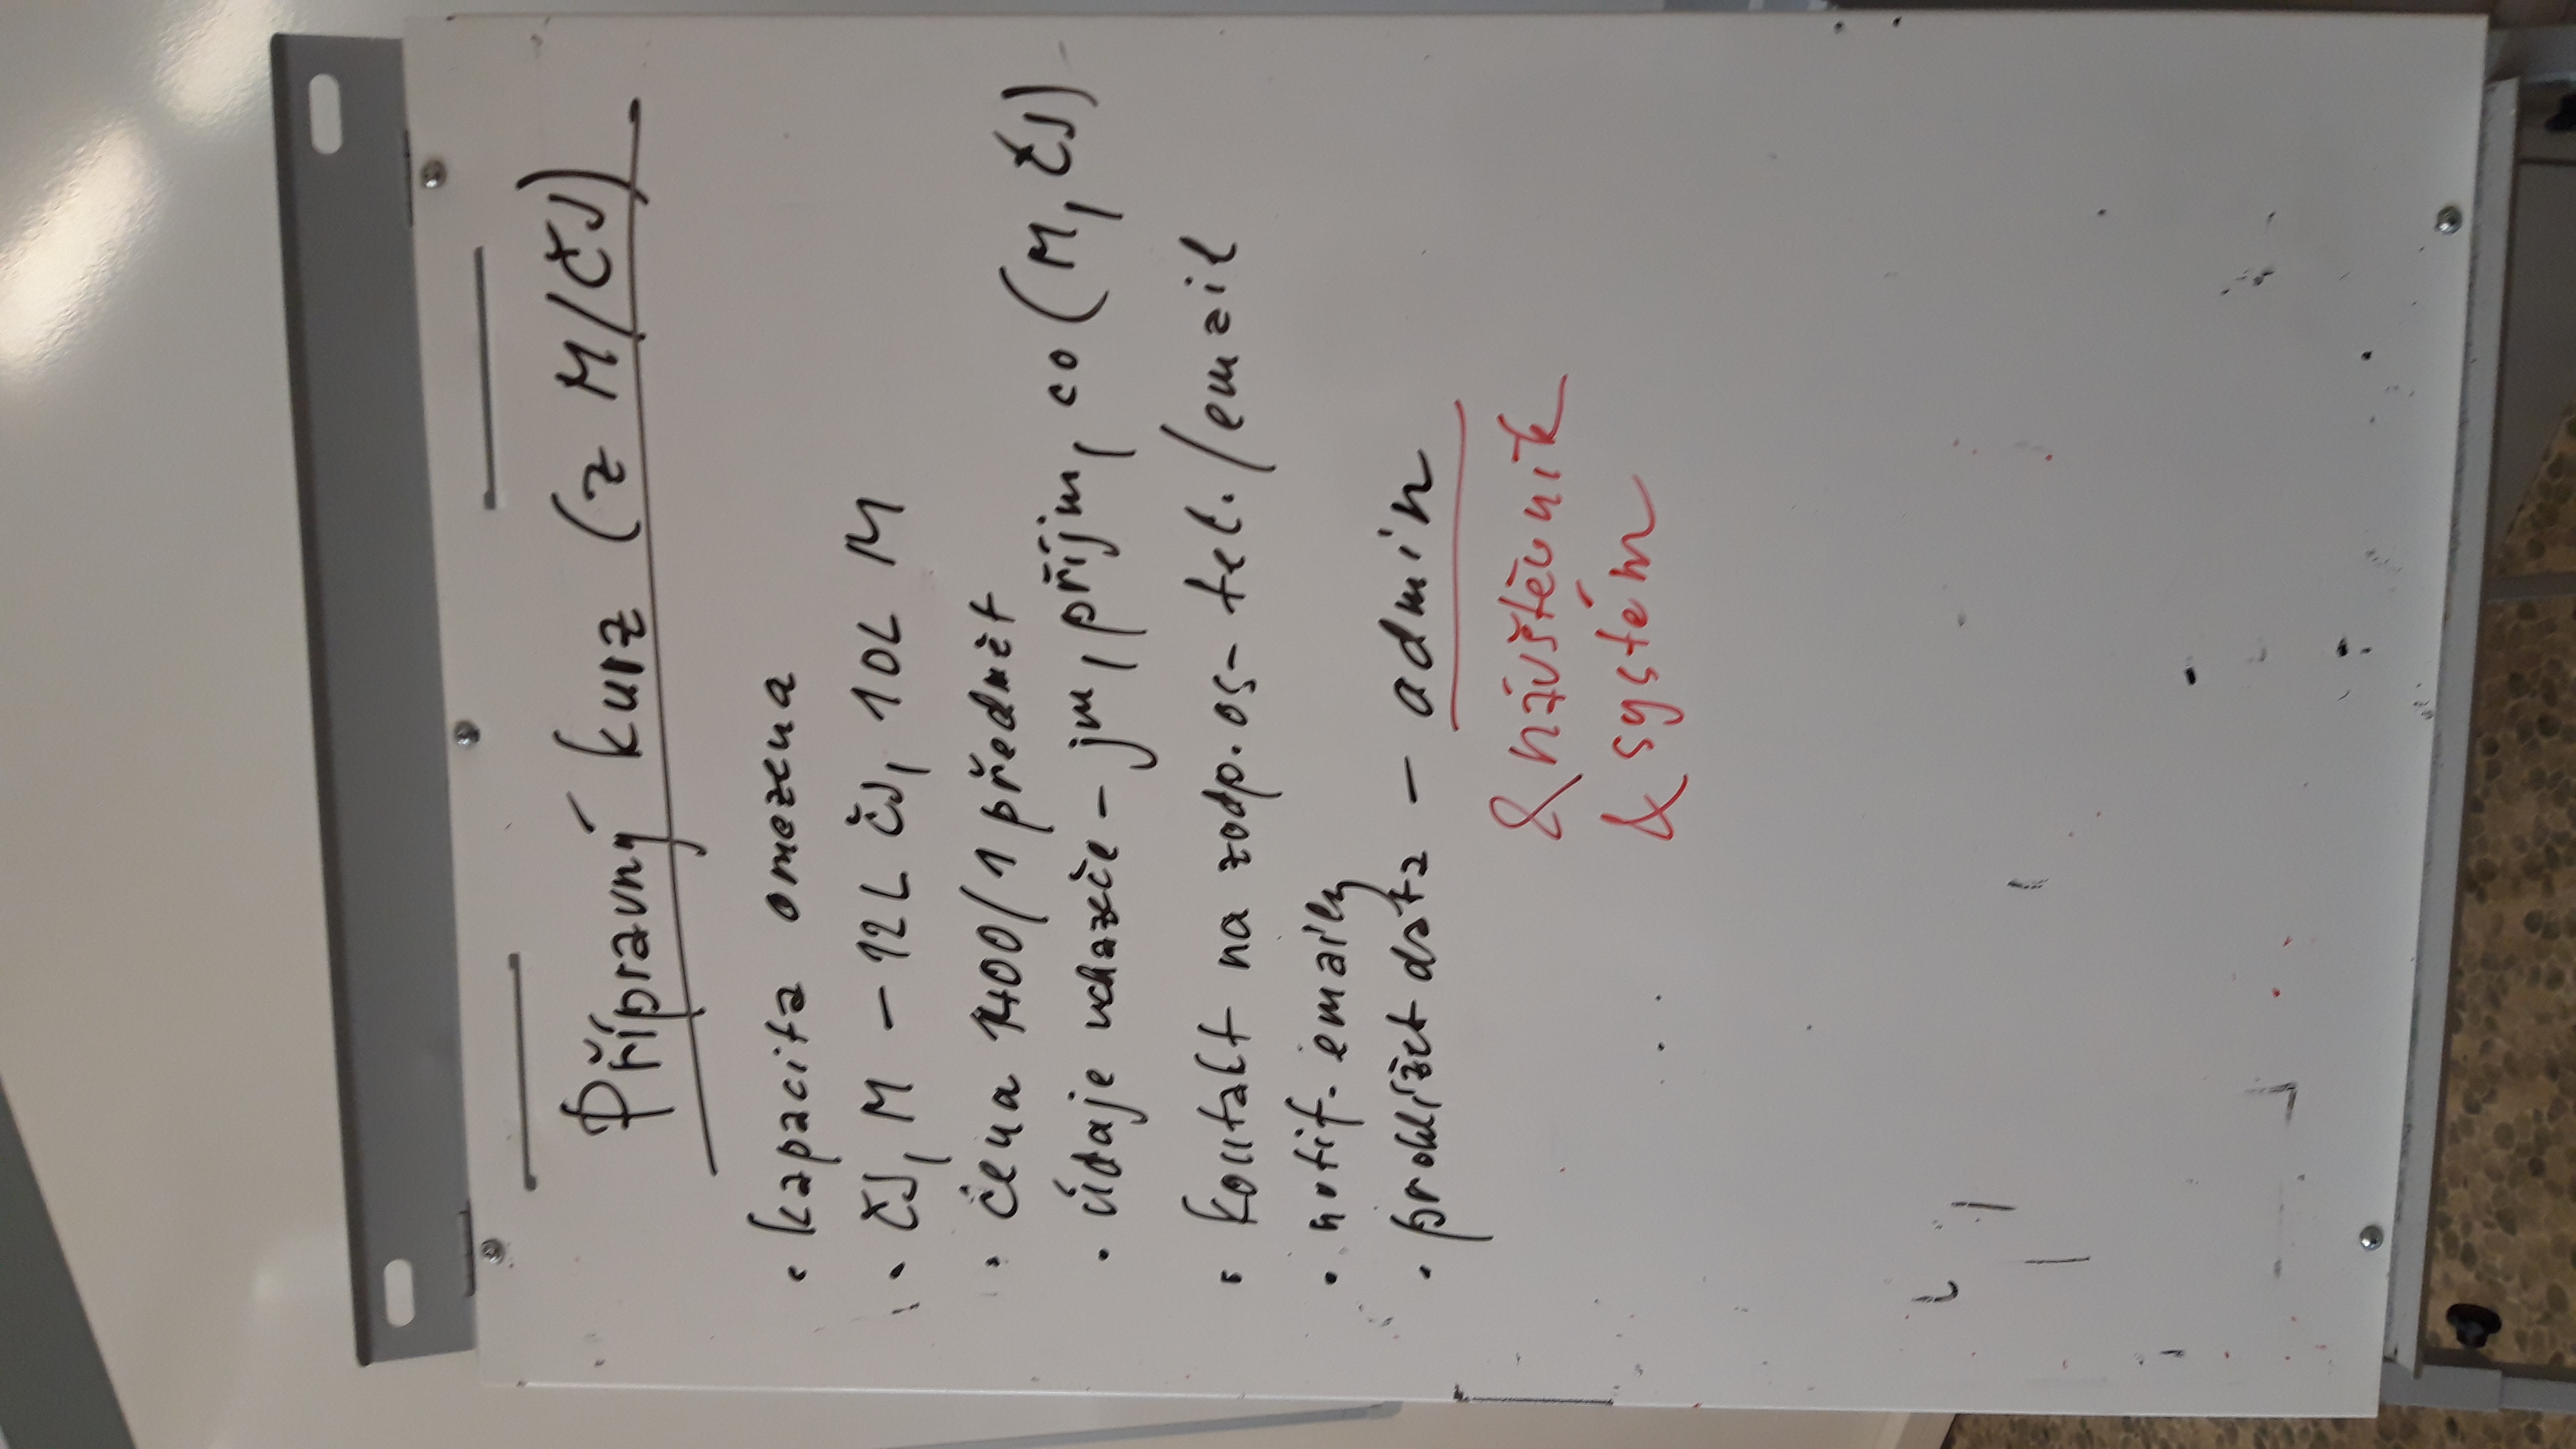 Přípravný kurz (z M/ČJ)
• kapacita omezena
• ČJ, M – 12L ČJ, 10L M
• cena 1400/1 předmět
• údaje uchazeče – jm, příjm, co (M, ČJ)
• kontakt na zodp. os – tel./email
• notif. emaily
• prohlížet data – admin
& návštěvník
& systém